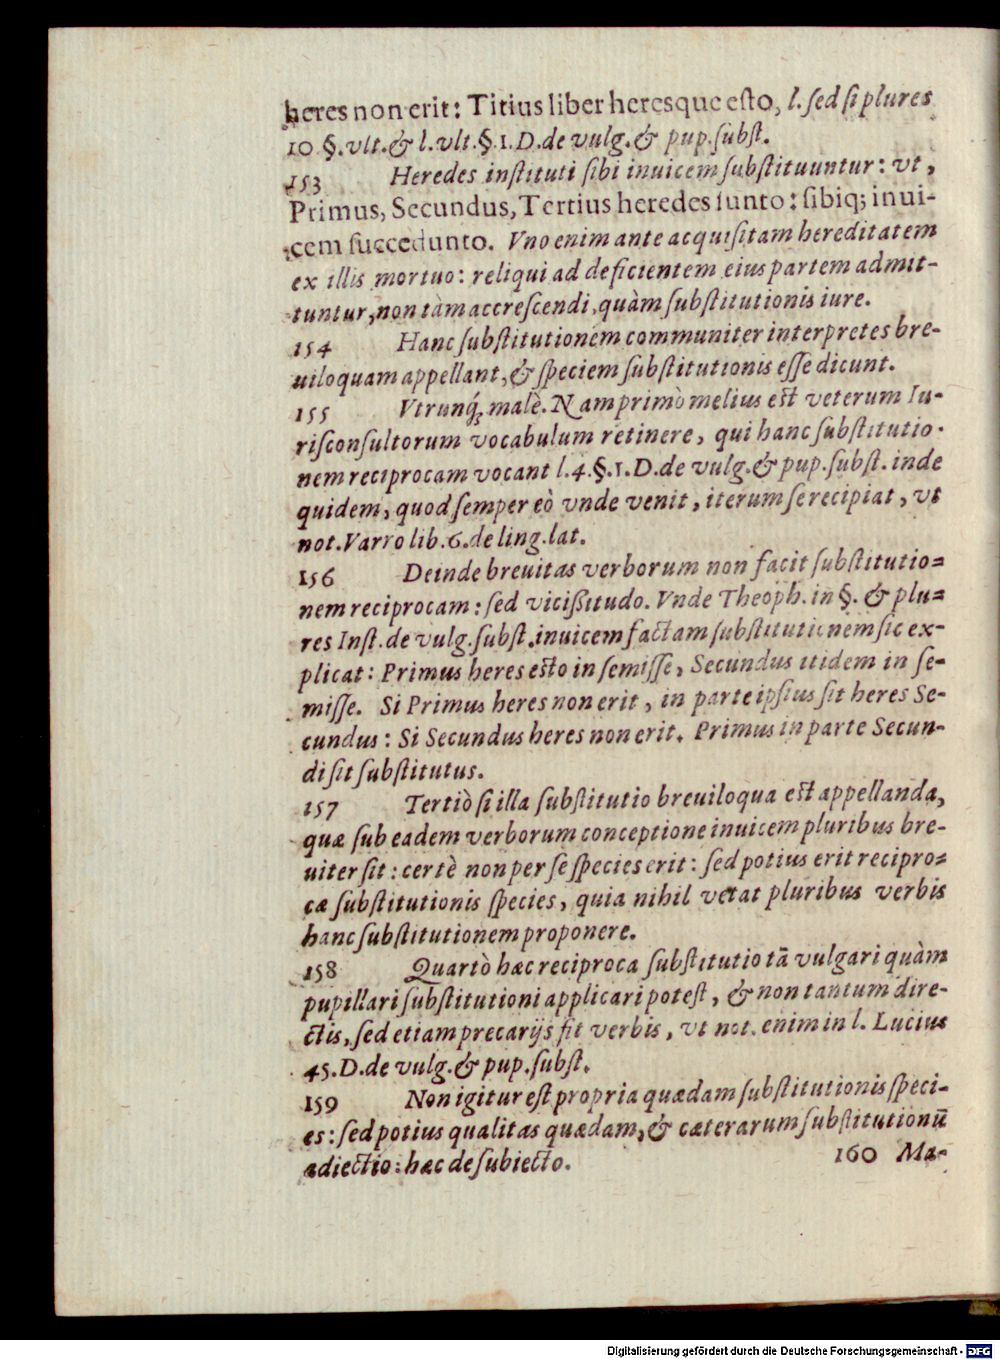 heres non erit: Titius liber heresque esto, l. sed si plures
10 §. vlt. & l. vlt. §. 1. D. de vulg. & pup. subst.
153 Heredes instituti sibi inuicem substituuntur: vt,
Primus, Secundus, Tertius heredes sunto: sibiq; inui-
cem succedunto. Vno enim ante acquisitam hereditatem
ex illis mortuo: reliqui ad deficientem eius partem admit-
tuntur, non tàm accrescendi, quàm substitutionis iure.
154 Hanc substitutionem communiter interpretes bre-
uiloquam appellant, & speciem substitutionis esse dicunt.
155 Vtrunq́; malè. Nam primò melius est veterum Iu-
risconsultorum vocabulum retinere, qui hanc substitutio-
nem reciprocam vocant l. 4. §. 1. D. de vulg. & pup. subst. inde
quidem, quod semper eò vnde venit, iterum se recipiat, vt
not. Varro lib. 6. de ling. lat.
156 Deinde breuitas verborum non facit substitutio-
nem reciprocam: sed vicißitudo. Vnde Theoph. in §. & plu-
res Inst. de vulg. subst. inuicem factam substitutionem sic ex-
plicat: Primus heres esto in semisse, Secundus itidem in se-
misse. Si Primus heres non erit, in parte ipsius sit heres Se-
cundus: Si Secundus heres non erit. Primus in parte Secun-
di sit substitutus.
157 Tertiò si illa substitutio breuiloqua est appellanda,
quæ sub eadem verborum conceptione inuicem pluribus bre-
uiter sit: certè non per se species erit: sed potius erit recipro-
cæ substitutionis species, quia nihil vetat pluribus verbis
hanc substitutionem proponere.
158 Quartò hæc reciproca substitutio tā vulgari quàm
pupillari substitutioni applicari potest, & non tantum dire-
ctis, sed etiam precarijs fit verbis, vt not. enim in l. Lucius
45. D. de vulg. & pup. subst.
159 Non igitur est propria quædam substitutionis speci-
es: sed potius qualitas quædam, & cæterarum substitutionū
adiectio: hæc de subiecto.
160 Ma-
Digitalisierung gefördert durch die Deutsche Forschungsgemeinschaft - DFG